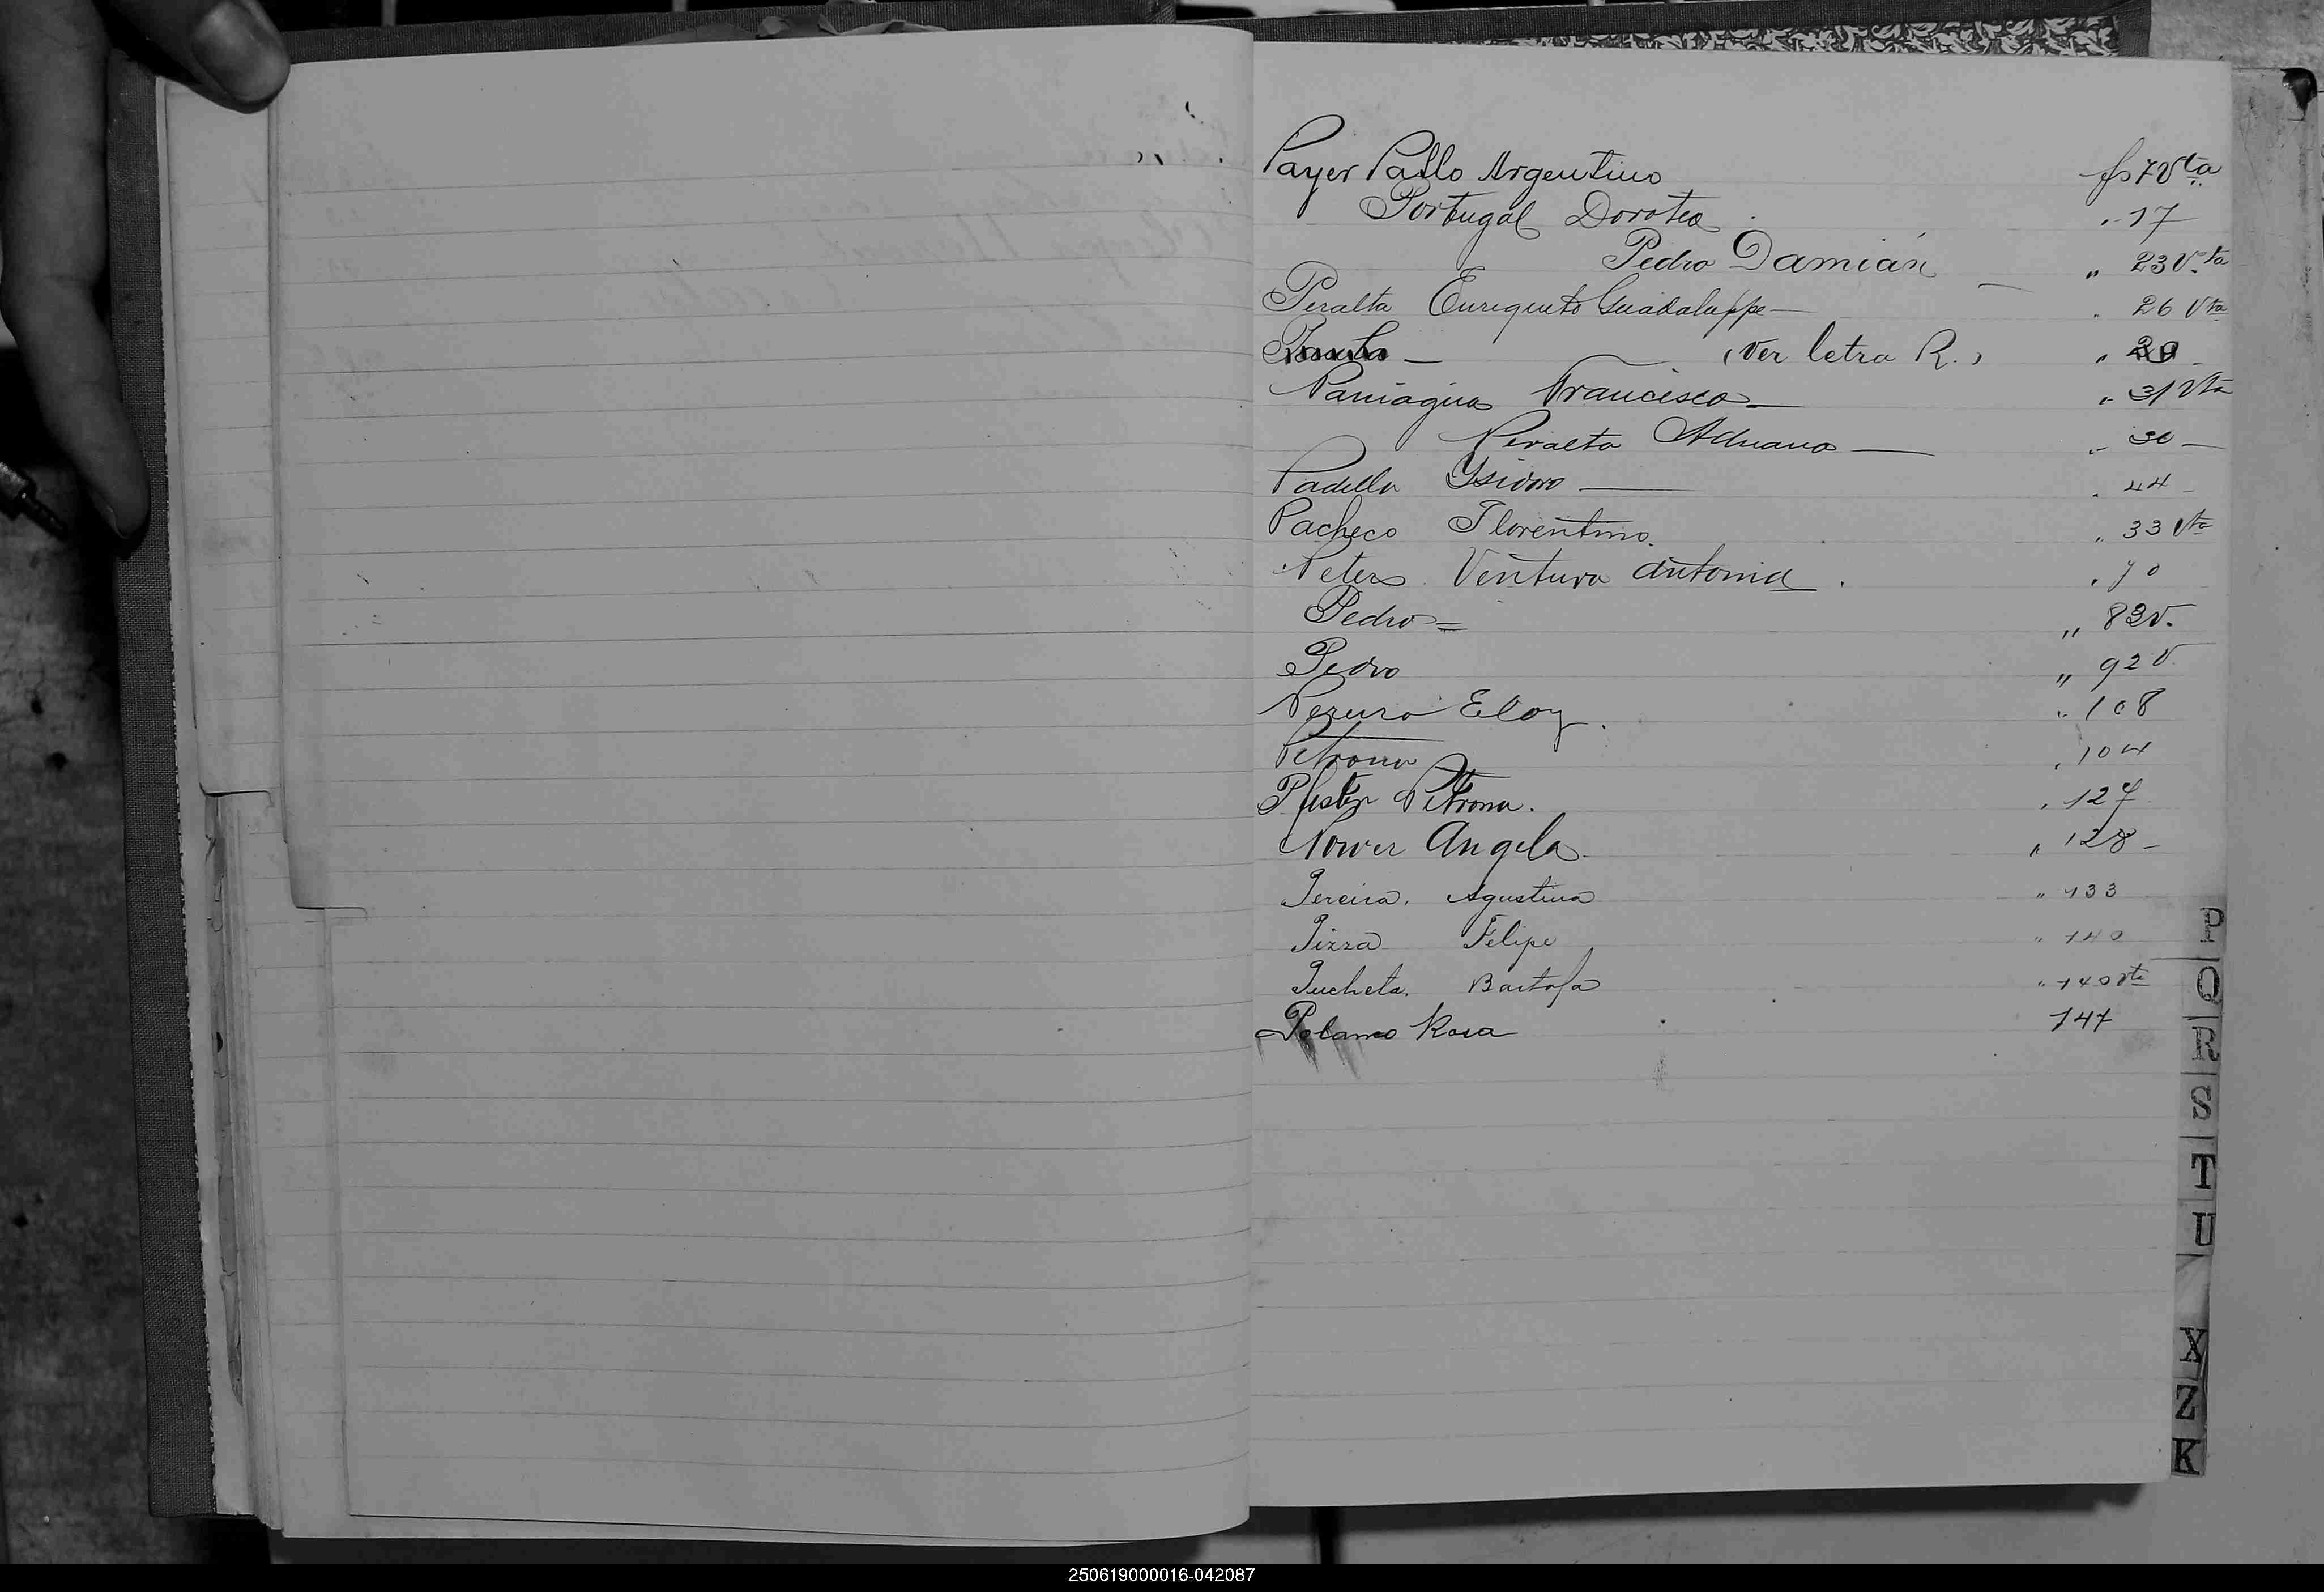 Payer Pablo Argentino fs 7 Vta
Portugal Dorotea „ 17
Pedro Damián „ 23 V.ta
Peralta Enriqueta Guadaluppe — „ 26 Vta
— (Ver letra R.) „
Paniagua Francisca — „ 31 Vta
Peralta Adriana — „ 30 —
Padilla Ysidoro — „ 44 —
Pacheco Florentino. „ 33 Vta
Peters Ventura Antonia . „ 70
Pedro = „ 83 v.
Pedro „ 92 V.
Eloy . „ 108
Petrona „ 104
Pfister Petrona. „ 127
Angela. „ 128 –
Pereira. Agustina „ 133
Pizza Felipe „ 140
Pucheta. Bartola „ 140 vta
Rosa 147
P
Q
R
S
T
U
X
Z
K
250619000016-042087